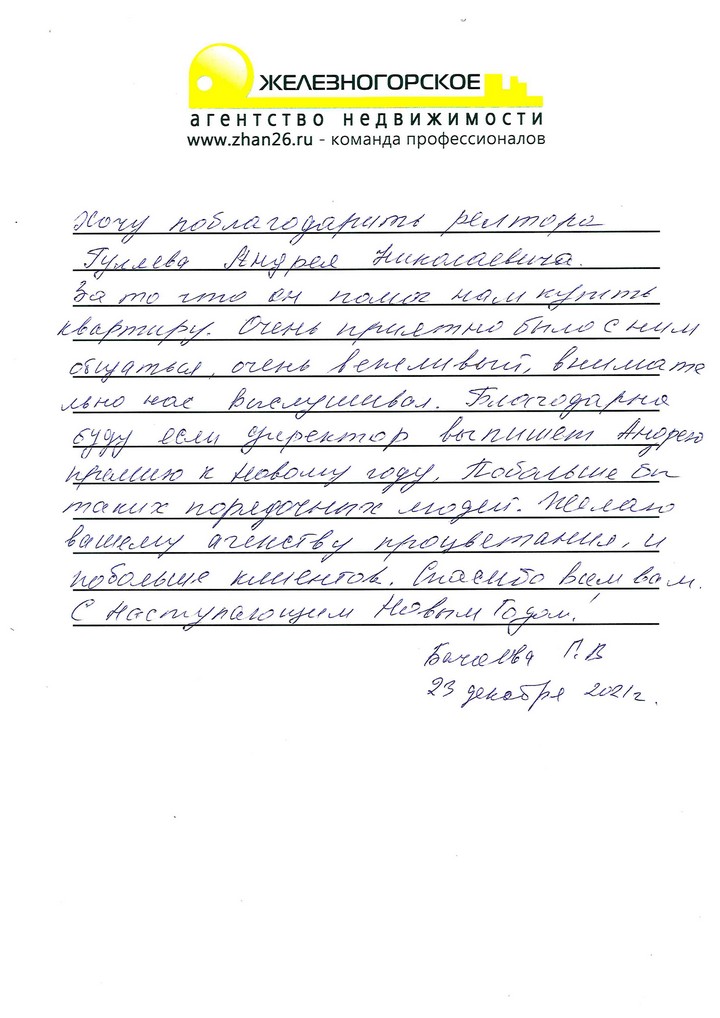 ЖЕЛЕЗНОГОРСКОЕ
агентство недвижимости
www.zhan26.ru - команда профессионалов
Хочу поблагодарить релтора
Гуляева Андрея Николаевича.
За то что он помог нам купить
квартиру. Очень приятно было с ним
общаться, очень вежливый, внимате
льно нас выслушивал. Благодарна
буду если директор выпишет Андрею
премию к Новому году. Побольше бы
таких порядочных людей. Желаю
вашему агенству процветания, и
побольше клиентов. Спасибо всем вам.
С наступающим Новым Годом!
Г.В
23 декабря 2021г.